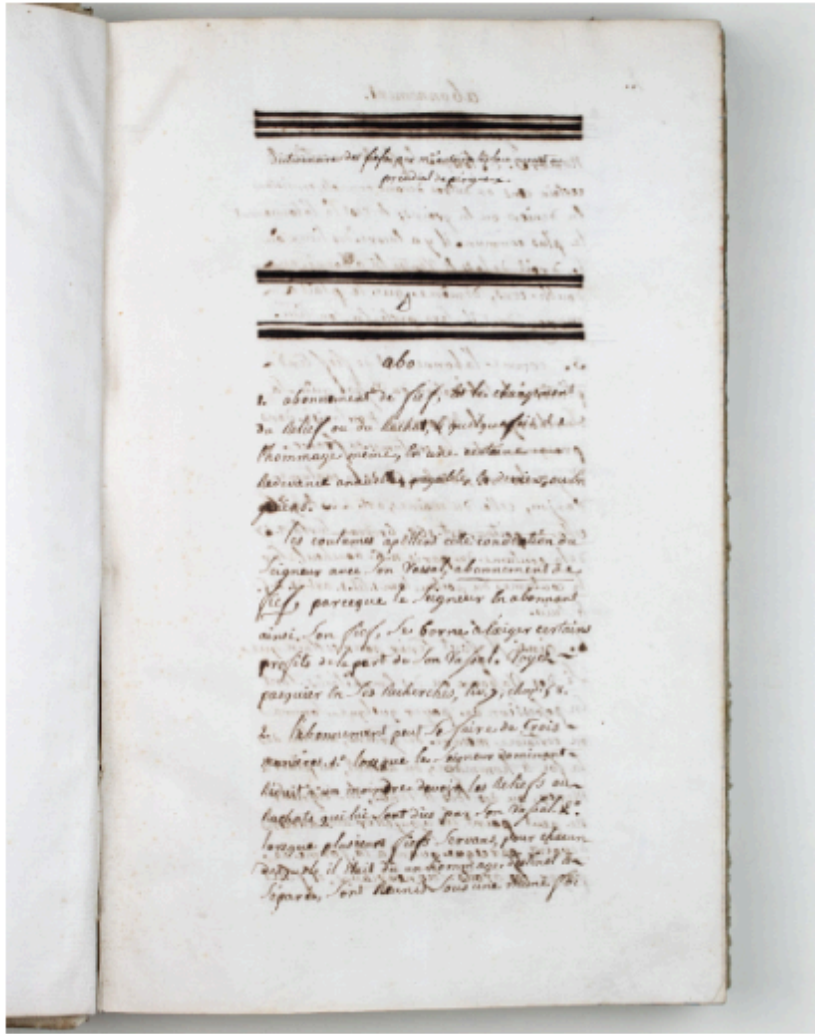 abonnement.
Dictionnaire des fiefs, par
présidial de périgueux.
abo
1. abonnement de fief, est le changement
du Relief ou du Rachat, & quelque fois de
l'hommage même, En une certaine
Redevance annuelle, payable En deniers, ou En
grains.
les coutumes apellent cette convention du
Seigneur avec son Vassal, abonnement de
fief, parceque le Seigneur En abonnant
ainsi son fief, se borne a Exiger certains
profits de la part de son Vassal. Voyez
pasquier En ses Recherches, liv.
2. l'abonnement peut se faire de Trois
manieres. 1º lorsque le Seigneur dominant
Réduit a un moindre devoir les Reliefs ou
Rachats qui lui sont dus par son Vassal. 2º
lorsque plusieurs fiefs Servans, pour chacun
desquels il Etait du un hommage distinct &
séparé, sont Reunis sous une même foi